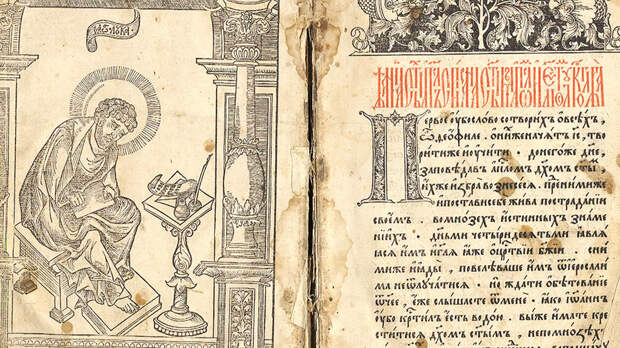 лꙋка
Первое оубо слово сотворихъ ѡ всѣхъ,
ѽ деофиле. ѡ нихже начатъ іс҃, тво
рити же и оучити. до негоже дн҃е,
заповѣдавъ ап҃лѡмъ дх҃омъ ст҃ы
мъ, ихже избра вознесесѧ. пред ними же
и постави себе жива по страданїи
своемъ. во мнозехъ истинныхъ знаме
нїихъ. дньми четыридесѧтьми ꙗвлѧѧ
сѧ имъ, и гл҃ѧ ꙗже о цр҃ствїи бж҃їи. с ни
ми же и ꙗды, повелѣваше имъ ѿ їерⷭ҇али
ма не ѿлꙋчатисѧ. нѡ ждати обѣтованїе
ѿчее, еже слышасте ѿ мене. ꙗко їѡаннъ
оубо крⷭ҇тилъ есть водою. вы же имате кре
ститисѧ дх҃омъ ст҃ымъ, не по мнозѣхъ